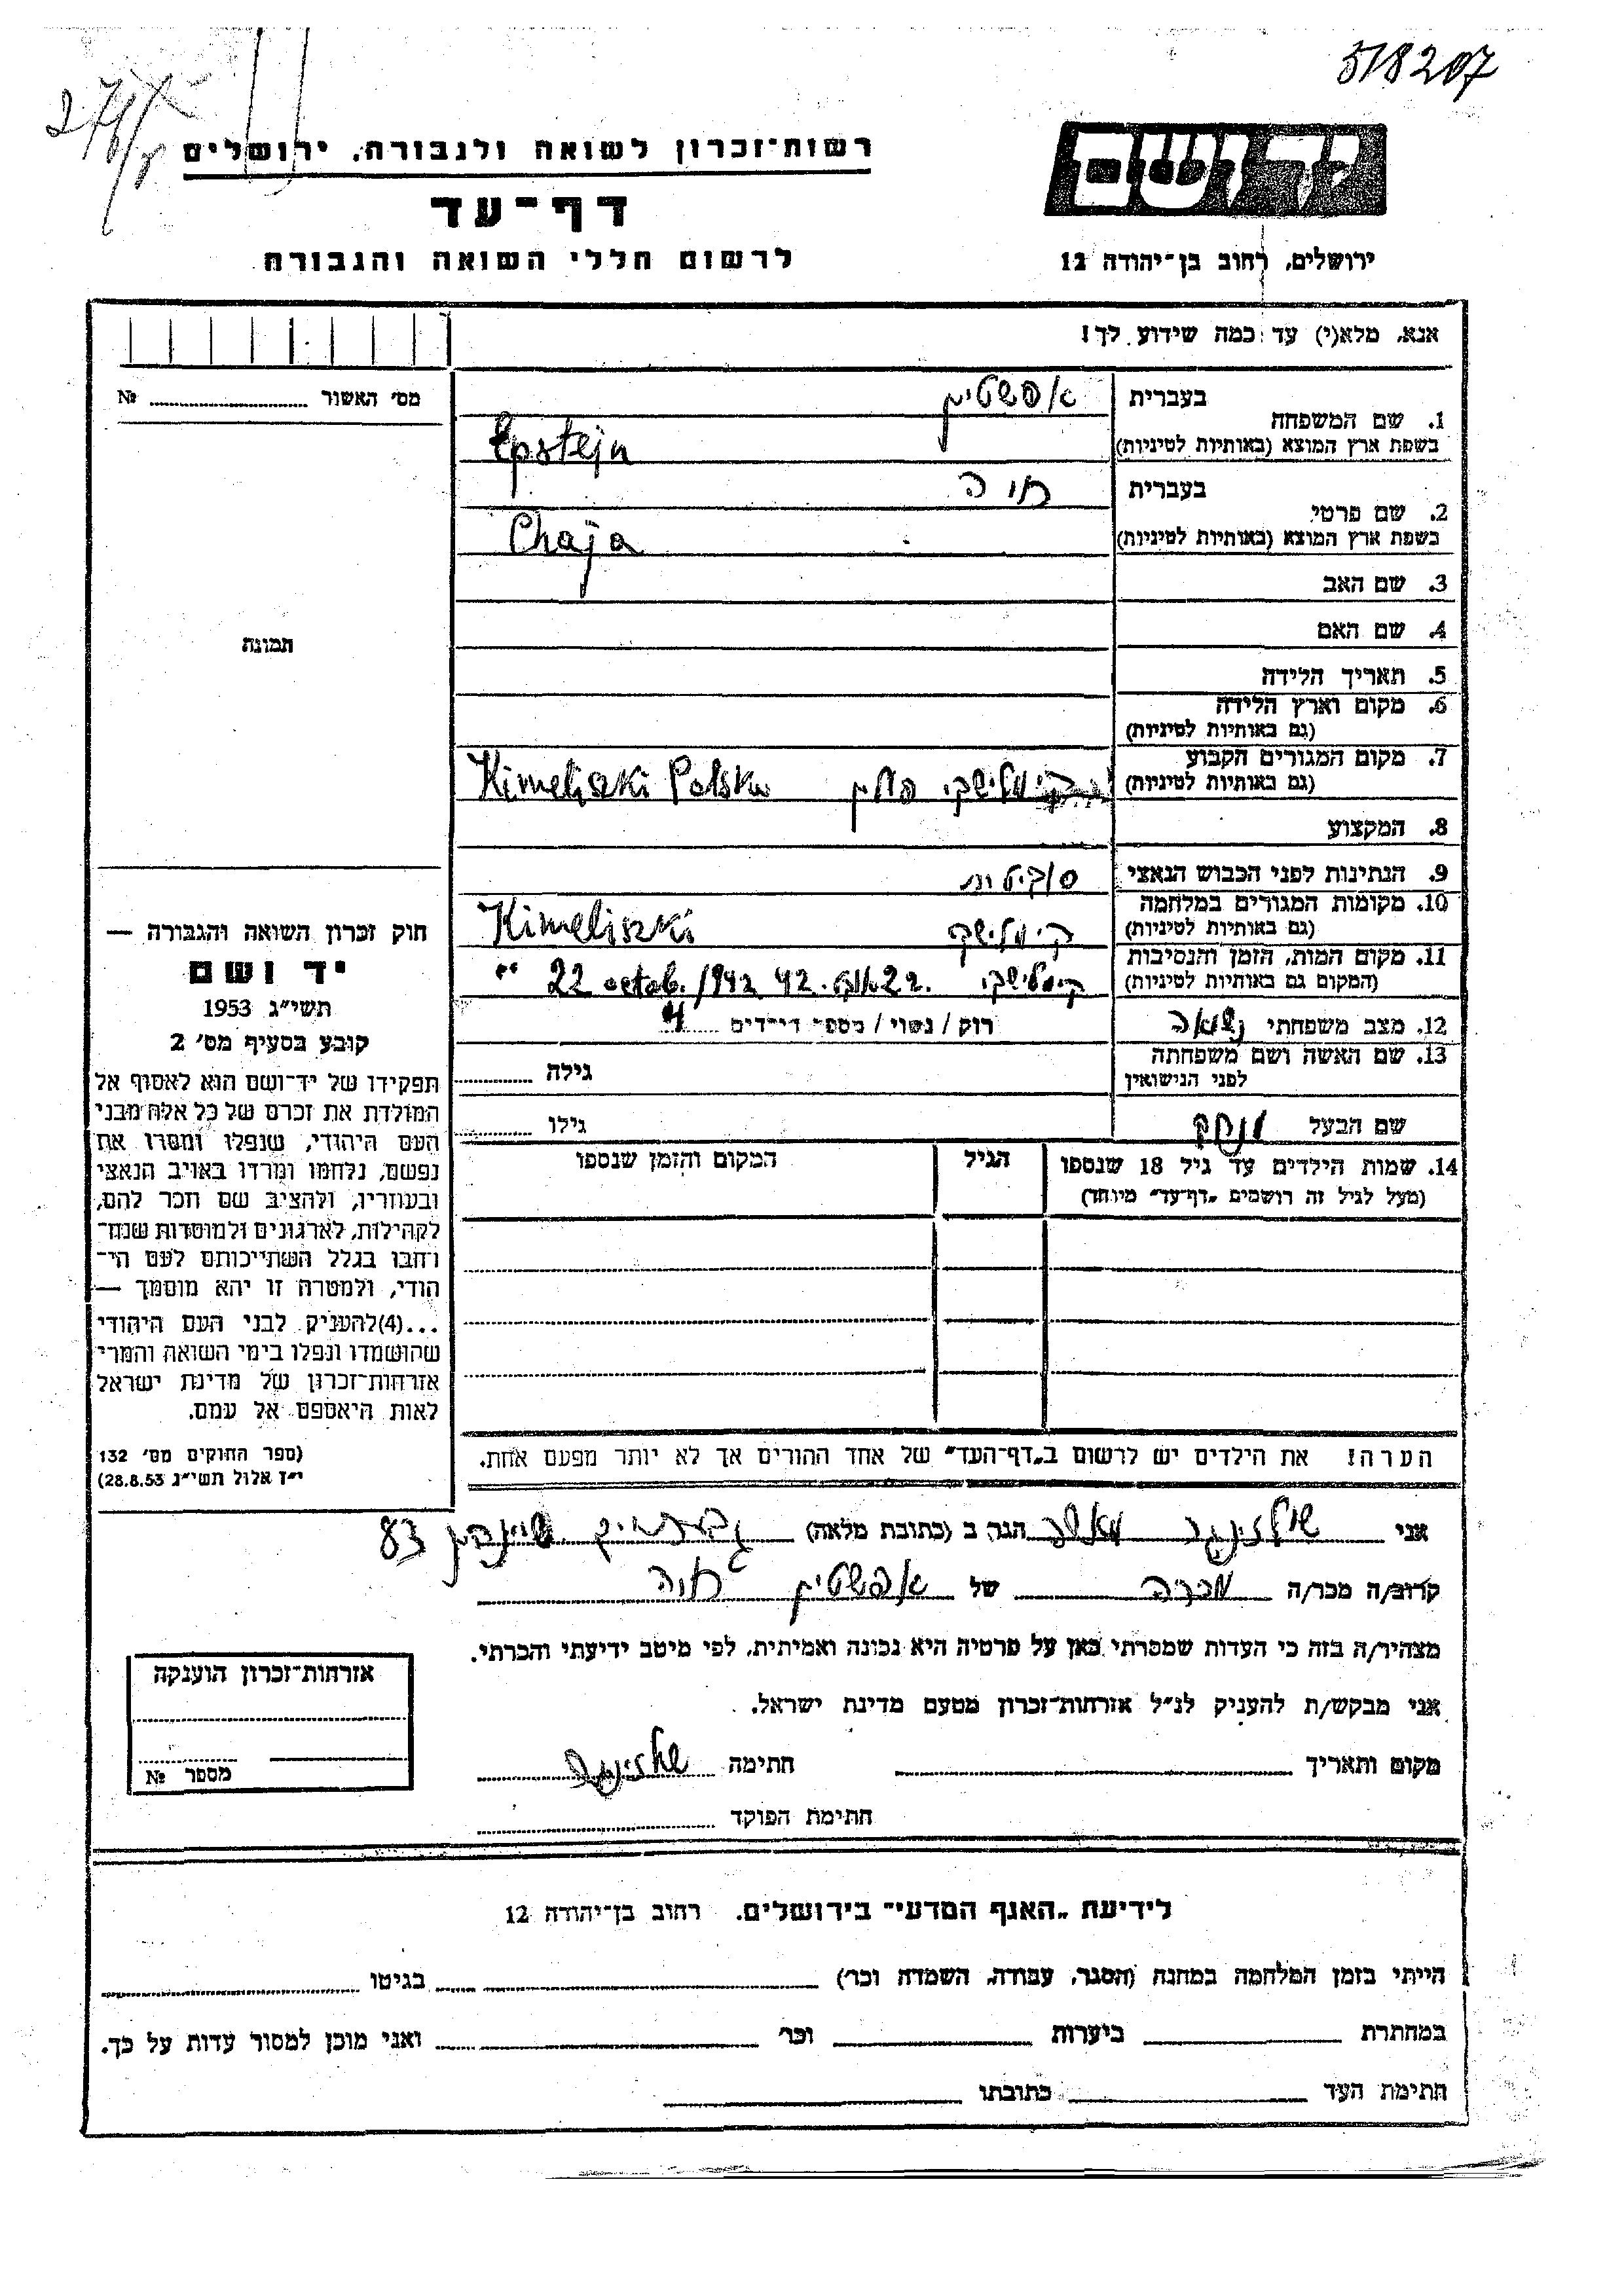 518207
יד ושם
רשות־זכרון לשואה ולגבורה, ירושלים
דף־עד
לרשום חללי השואה והגבורה
ירושלים, רחוב בן־יהודה 12
אנא, מלא(י) עד כמה שידוע לך!
מס׳ האשור № 
בעברית אפשטיין
1. שם המשפחה
בשפת ארץ המוצא (באותיות לטיניות) Epstejn
בעברית חיה
2. שם פרטי
בשפת ארץ המוצא (באותיות לטיניות) Chaja
3. שם האב
4. שם האם
תמונה
5. תאריך הלידה
6. מקום וארץ הלידה
(גם באותיות לטיניות)
7. מקום המגורים הקבוע
(גם באותיות לטיניות) קימלישקי פולין Kimeliszki Polska
8. המקצוע
9. הנתינות לפני הכבוש הנאצי סוביטית
10. מקומות המגורים במלחמה
(גם באותיות לטיניות) קימלישקי Kimeliszki
11. מקום המות, הזמן והנסיבות
(המקום גם באותיות לטיניות) קימלישקי 22 אוקט. 42. 22 octob. 1942
12. מצב משפחתי נשואה רוק / נשוי / מספר הילדים 4
13. שם האשה ושם משפחתה
לפני הנישואין גילה
שם הבעל גילו
14. שמות הילדים עד גיל 18 שנספו הגיל המקום והזמן שנספו
(מעל לגיל זה רושמים „דף־עד” מיוחד)
הערה! את הילדים יש לרשום ב„דף־העד” של אחד ההורים אך לא יותר מפעם אחת.
חוק זכרון השואה והגבורה —
יד ושם
תשי״ג 1953
קובע בסעיף מס׳ 2
תפקידו של יד־ושם הוא לאסוף אל
המולדת את זכרם של כל אלה מבני
העם היהודי, שנפלו ומסרו את
נפשם, נלחמו ומרדו באויב הנאצי
ובעוזריו, ולהציב שם וזכר להם,
לקהילות, לארגונים ולמוסדות שנח־
רבו בגלל השתייכותם לעם הי־
הודי, ולמטרה זו יהא מוסמך —
...(4)להעניק לבני העם היהודי
שהושמדו ונפלו בימי השואה והמרי
אזרחות־זכרון של מדינת ישראל
לאות היאספם אל עמם.
(ספר החוקים מס׳ 132
י״ז אלול תשי״ג 28.8.53)
אני שולזינגר הגר, ב (כתובת מלאה) גבעתיים שיינקין 83
קרוב/ה מכר/ה מכרה של אפשטיין חיה
מצהיר/ה בזה כי העדות שמסרתי כאן על פרטיה היא נכונה ואמיתית, לפי מיטב ידיעתי והכרתי.
אני מבקש/ת להעניק לנ״ל אזרחות־זכרון מטעם מדינת ישראל.
מקום ותאריך חתימה
חתימת הפוקד
אזרחות־זכרון הוענקה
מספר №
לידיעת „האגף המדעי” בירושלים. רחוב בן־יהודה 12
הייתי בזמן המלחמה במחנה (הסגר, עבודה, השמדה וכר׳) בגיטו
במחתרת ביערות וכר׳ ואני מוכן למסור עדות על כך.
חתימת העד כתובתו